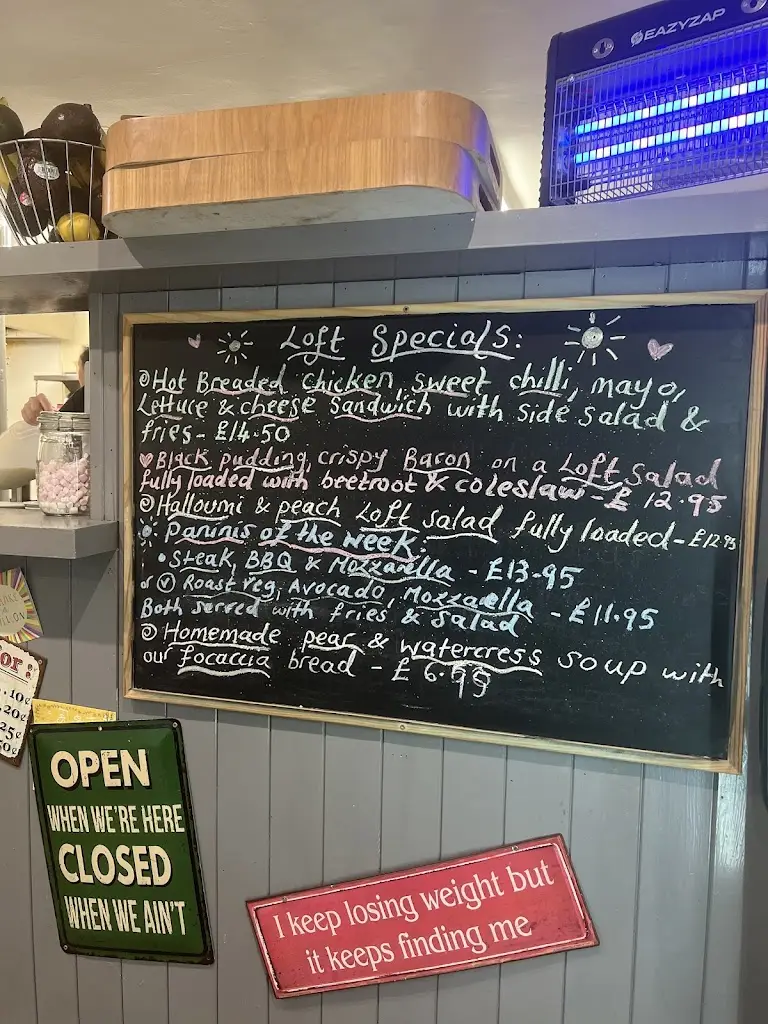 EAZYZAP
Loft Specials:
Hot Breaded chicken, sweet chilli, mayo,
Lettuce & cheese sandwich with side salad &
fries - £14.50
Black pudding, crispy Bacon on a Loft Salad
fully loaded with beetroot & coleslaw - £12.95
Halloumi & peach Loft salad fully loaded - £12.95
Paninis of the week:
• Steak, BBQ & Mozzarella - £13.95
or Ⓥ Roast veg, Avocado, Mozzarella - £11.95
Both served with fries & salad
Homemade pear & watercress soup with
our focaccia bread - £6.95
OPEN
WHEN WE'RE HERE
CLOSED
WHEN WE AIN'T
I keep losing weight but
it keeps finding me